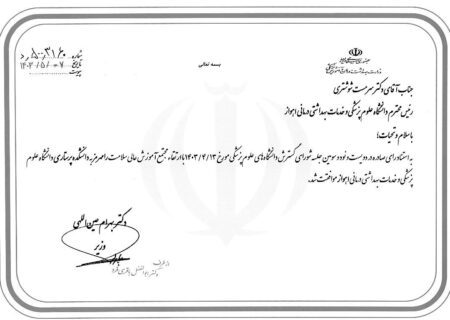 بسمه تعالی
شماره
تاریخ ۱۴۰۳/۰۵/۰۷
پیوست
جناب آقای دکتر سرمست شوشتری
رئیس محترم دانشگاه علوم پزشکی و خدمات بهداشتی درمانی اهواز
با سلام و تحیات؛
به استناد رای صادره در دویست و نود و سومین جلسه شورای گسترش دانشگاه‌های علوم پزشکی مورخ ۱۴۰۳/۴/۱۳ با ارتقاء مجتمع آموزش عالی سلامت رامهرمز به دانشکده پرستاری دانشگاه علوم
پزشکی و خدمات بهداشتی درمانی اهواز موافقت شد.
دکتر بهرام عین اللهی
وزیر
از طرف
دکتر ابوالفضل باقری فرد